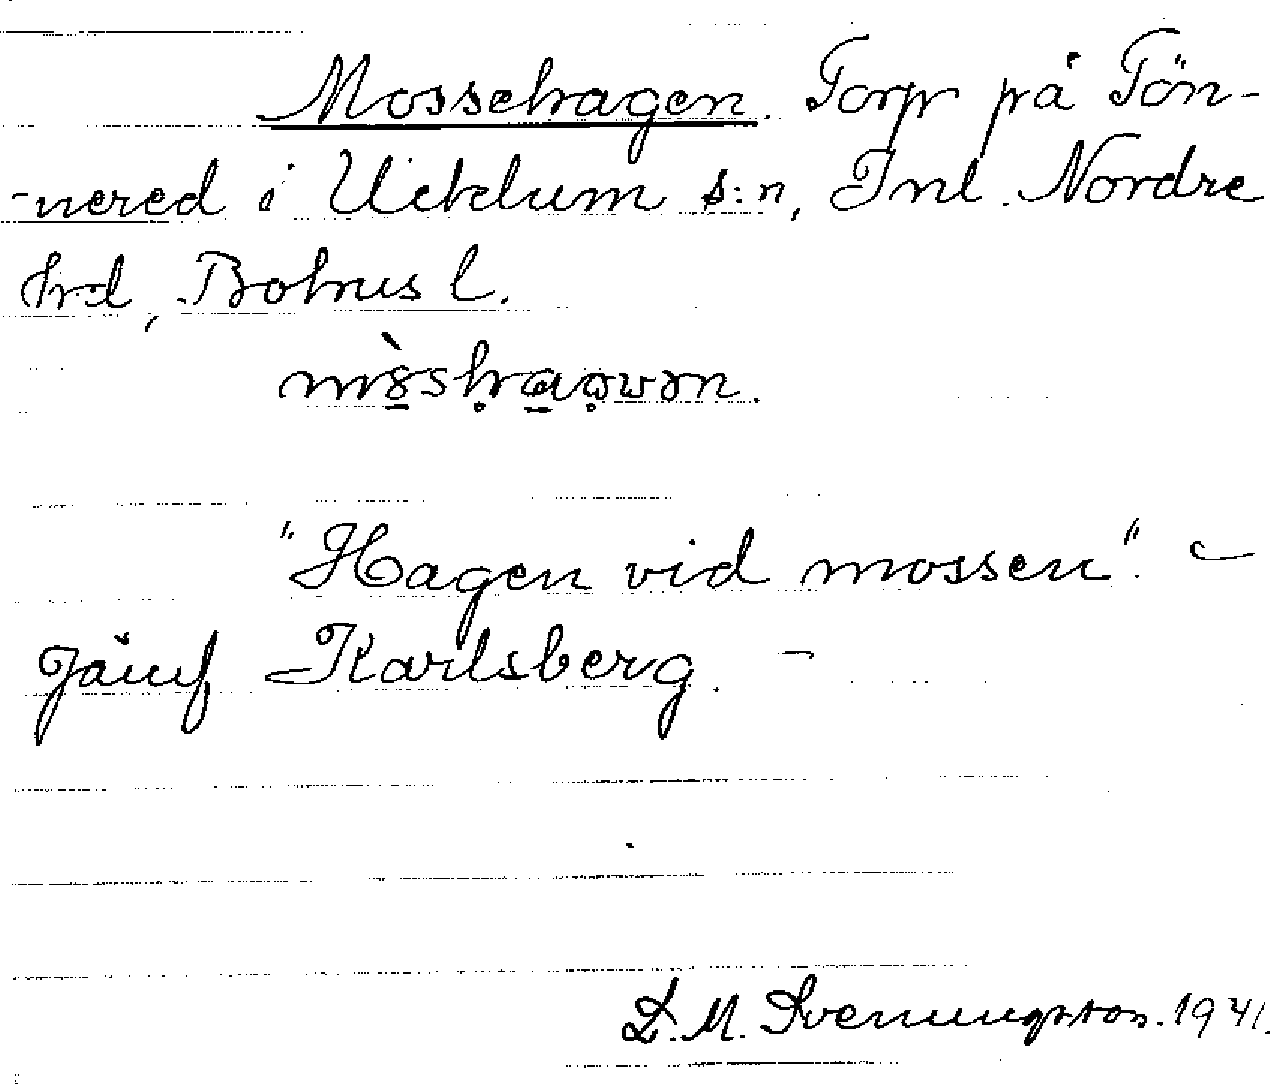 Mossehagen. Torp på Tön-
-nered i Ucklum s:n, Inl. Nordre
hd, Bohus l.
"Hagen vid mossen". –
Jämf. Karlsberg. –
S. M. Svenungsson. 1941.